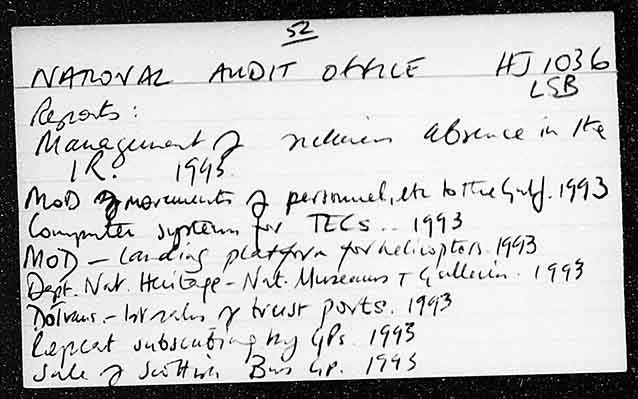 52
NATIONAL AUDIT OFFICE HJ 1036
LSB
Reports:
Management of sickness absence in the
IR. 1993.
MoD movements of personnel, etc to the Gulf. 1993
Computer systems for TECs.. 1993
MOD – Landing platform for helicopters. 1993
Dept. Nat. Heritage – Nat. Museums + Galleries. 1993
DoTrans. – 1st sales of trust ports. 1993
Repeat subscribing by GPs. 1993
Sale of Scottish Bus Gp. 1993